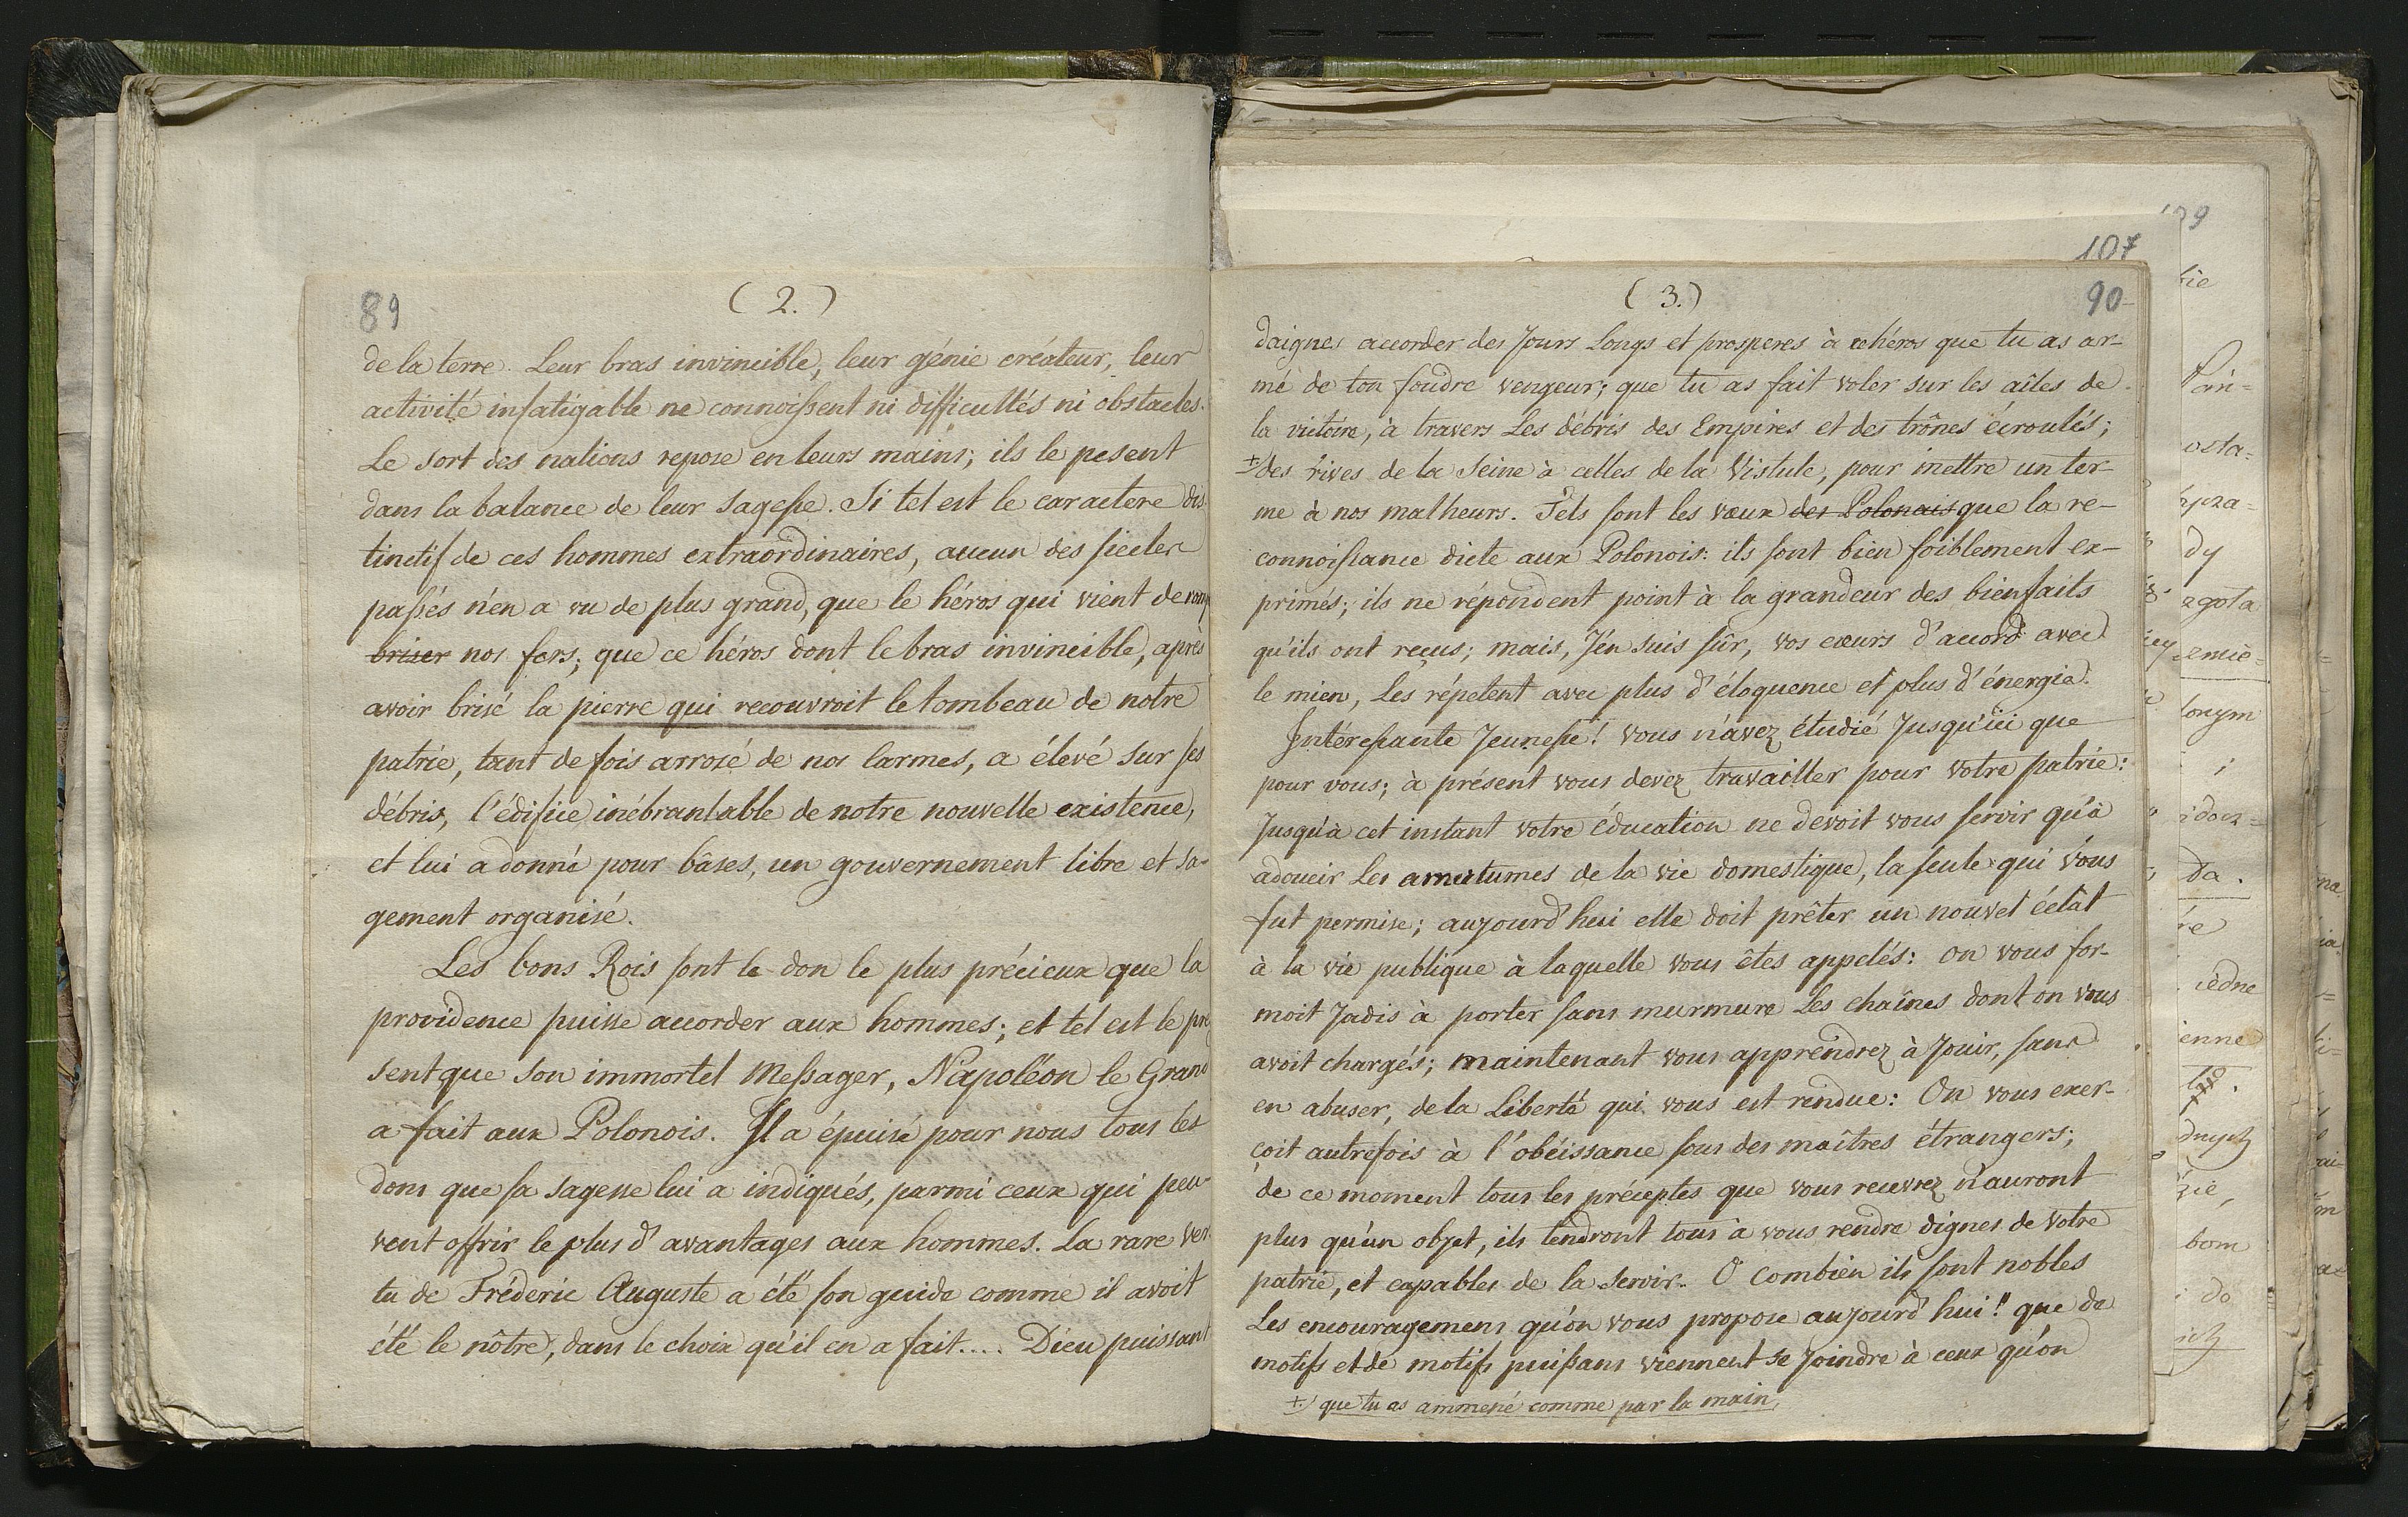 89
(2.)
de la terre. Leur bras invincible, leur génie créateur, leur
activité infatigable ne connoißent ni difficultés ni obstacles.
Le sort des nations repose en leurs mains; ils le pesent
dans la balance de leur sageße. Si tel est le caractere dis
tinctif de ces hommes extraordinaires, aucun des siecles
paßés n'en a vu de plus grand, que le héros qui vient de romp
briser nos fers; que ce héros dont le bras invincible, après
avoir brisé la pierre qui recouvroit le tombeau de notre
patrie, tant de fois arrosé de nos larmes, a élevé sur ses
débris, l'édifice inébranlable de notre nouvelle existence,
et lui a donné pour bâses, un gouvernement libre et sa-
gement organisé.
Les bons Rois sont le don le plus précieux que la
providence puisse accorder aux hommes; et tel est le pré
sent que son immortel Meßager, Napoléon le Grand
a fait aux Polonois. Il a épuisé pour nous tous les
dons que sa sagesse lui a indiqués, parmi ceux qui peu-
vent offrir le plus d'avantages aux hommes. La rare ver
tu de Fréderic Auguste a été son guide comme il avoit
été le nôtre, dans le choix qu'il en a fait.... Dieu puissant
107
(3.)
90
daignes accorder des Jours Longs et prosperes à ce héros que tu as ar-
mé de ton foudre vengeur; que tu as fait voler sur les aîles de
la victoire, à travers Les débris des Empires et des trônes écroulés;
+ des rives de la Seine à celles de la Vistule, pour mettre un ter-
me à nos malheurs. Tels sont les vœux des Polonais que la re-
connoißance dicte aux Polonois: ils sont bien foiblement ex-
primés; ils ne répondent point à la grandeur des bienfaits
qu'ils ont reçus; mais, J'en suis sûr, vos cœurs d'accord avec
le mien, Les répetent avec plus d'éloquence et plus d'énergie.
Intéreßante Jeuneße! vous n'avez étudié Jusqu'ici que
pour vous; à présent vous devez travailler pour votre patrie:
Jusqu'à cet instant votre éducation ne devoit vous servir qu'à
adoucir Les amertumes de la vie domestique, la seule qui vous
fut permise; aujourd'hui elle doit prêter un nouvel éclat
à la vie publique à laquelle vous êtes appelés: on vous for-
moit Jadis à porter sans murmure Les chaînes dont on vous
avoit chargés; maintenant vous apprendrez à Jouir, sans
en abuser, de la Liberté qui vous est rendue: On vous exer-
çoit autrefois à l'obéissance sous des maîtres étrangers;
de ce moment tous les préceptes que vous recevrez n'auront
plus qu'un objet, ils tendront tous à vous rendre dignes de votre
patrie, et capables de la servir. O combien ils sont nobles
Les encouragemens qu'on vous propose aujourd'hui!! que de
motifs et de motifs puißans viennent se Joindre à ceux qu'on
+) que tu as ammené comme par la main,